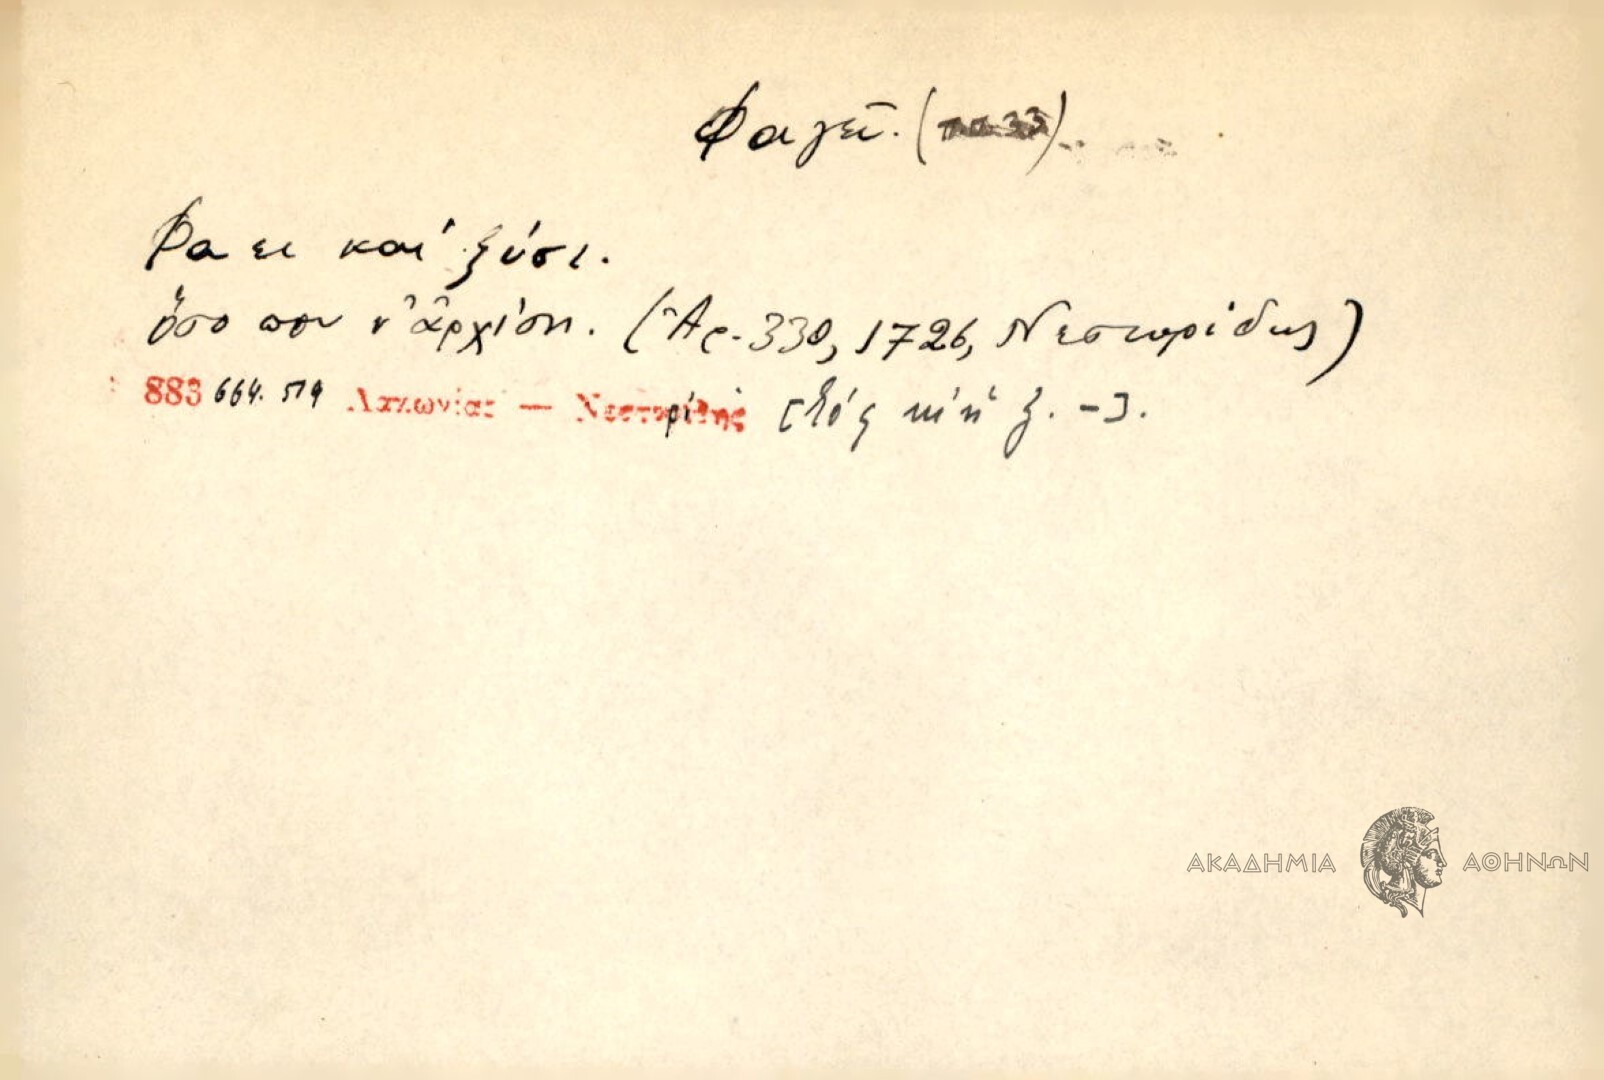 Φαγεῖ. (
Φα ει καὶ ξύσι.
ὅσο που ν' ἀρχίση. (Ἀρ. 330, 1726, Νεστορίδης)
883 664. 519 Λακωνίας — Νεστορίδης [ ξ. -].
ΑΚΑΔΗΜΙΑ ΑΘΗΝΩΝ